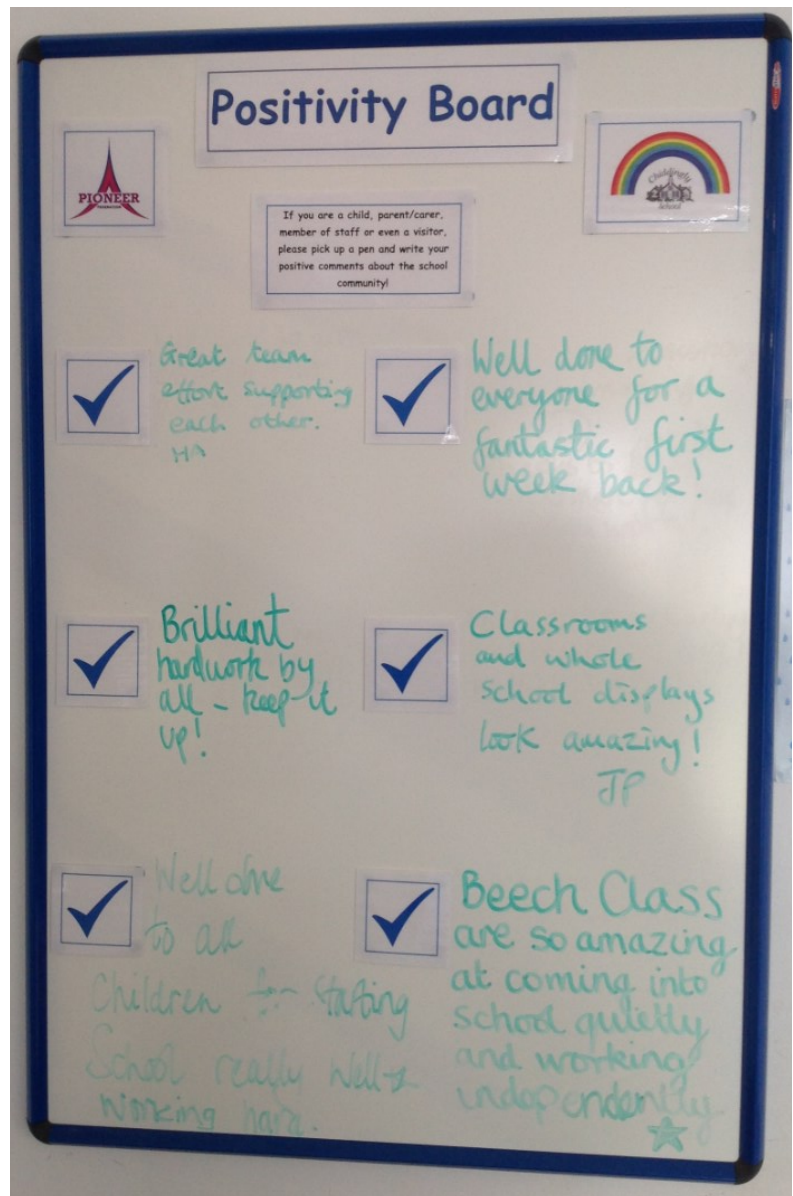 Positivity Board
PIONEER
Chiddingly
School
If you are a child, parent/carer,
member of staff or even a visitor,
please pick up a pen and write your
positive comments about the school
community!
Great team
effort supporting
each other.
Well done to
everyone for a
fantastic first
week back!
Brilliant
hardwork by
all - keep it
up!
Classrooms
and whole
school displays
look amazing!
JP
Well done
to all
Children for starting
School really well &
working hard.
Beech Class
are so amazing
at coming into
school quietly
and working
independently